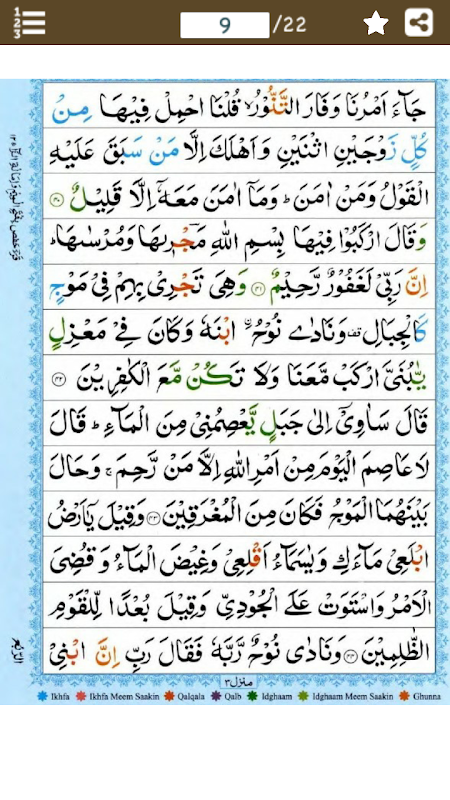 9 /22
جَآءَ اَمْرُنَا وَفَارَ التَّنُّوْرُ ۙ قُلْنَا احْمِلْ فِيْهَا مِنْ
كُلٍّ زَوْجَيْنِ اثْنَيْنِ وَاَهْلَكَ اِلَّا مَنْ سَبَقَ عَلَيْهِ
الْقَوْلُ وَمَنْ اٰمَنَ ؕ وَمَاۤ اٰمَنَ مَعَهٗۤ اِلَّا قَلِيْلٌ ﴿۴۰﴾
وَقَالَ ارْكَبُوْا فِيْهَا بِسْمِ اللّٰهِ مَجْرٖىهَا وَمُرْسٰىهَا ؕ
اِنَّ رَبِّيْ لَغَفُوْرٌ رَّحِيْمٌ ﴿۴۱﴾ وَهِيَ تَجْرِيْ بِهِمْ فِيْ مَوْجٍ
كَالْجِبَالِ ۟ وَنَادٰى نُوْحُ ۨ ابْنَهٗ وَكَانَ فِيْ مَعْزِلٍ
يّٰبُنَيَّ ارْكَبْ مَّعَنَا وَلَا تَكُنْ مَّعَ الْكٰفِرِيْنَ ﴿۴۲﴾
قَالَ سَاٰوِيْۤ اِلٰى جَبَلٍ يَّعْصِمُنِيْ مِنَ الْمَآءِ ؕ قَالَ
لَا عَاصِمَ الْيَوْمَ مِنْ اَمْرِ اللّٰهِ اِلَّا مَنْ رَّحِمَ ۚ وَحَالَ
بَيْنَهُمَا الْمَوْجُ فَكَانَ مِنَ الْمُغْرَقِيْنَ ﴿۴۳﴾ وَقِيْلَ يٰۤاَرْضُ
ابْلَعِيْ مَآءَكِ وَيٰسَمَآءُ اَقْلِعِيْ وَغِيْضَ الْمَآءُ وَقُضِيَ
الْاَمْرُ وَاسْتَوَتْ عَلَى الْجُوْدِيِّ وَقِيْلَ بُعْدًا لِّلْقَوْمِ
الظّٰلِمِيْنَ ﴿۴۴﴾ وَنَادٰى نُوْحٌ رَّبَّهٗ فَقَالَ رَبِّ اِنَّ ابْنِيْ
منزل ۳
Ikhfa Ikhfa Meem Saakin Qalqala Qalb Idghaam Idghaam Meem Saakin Ghunna